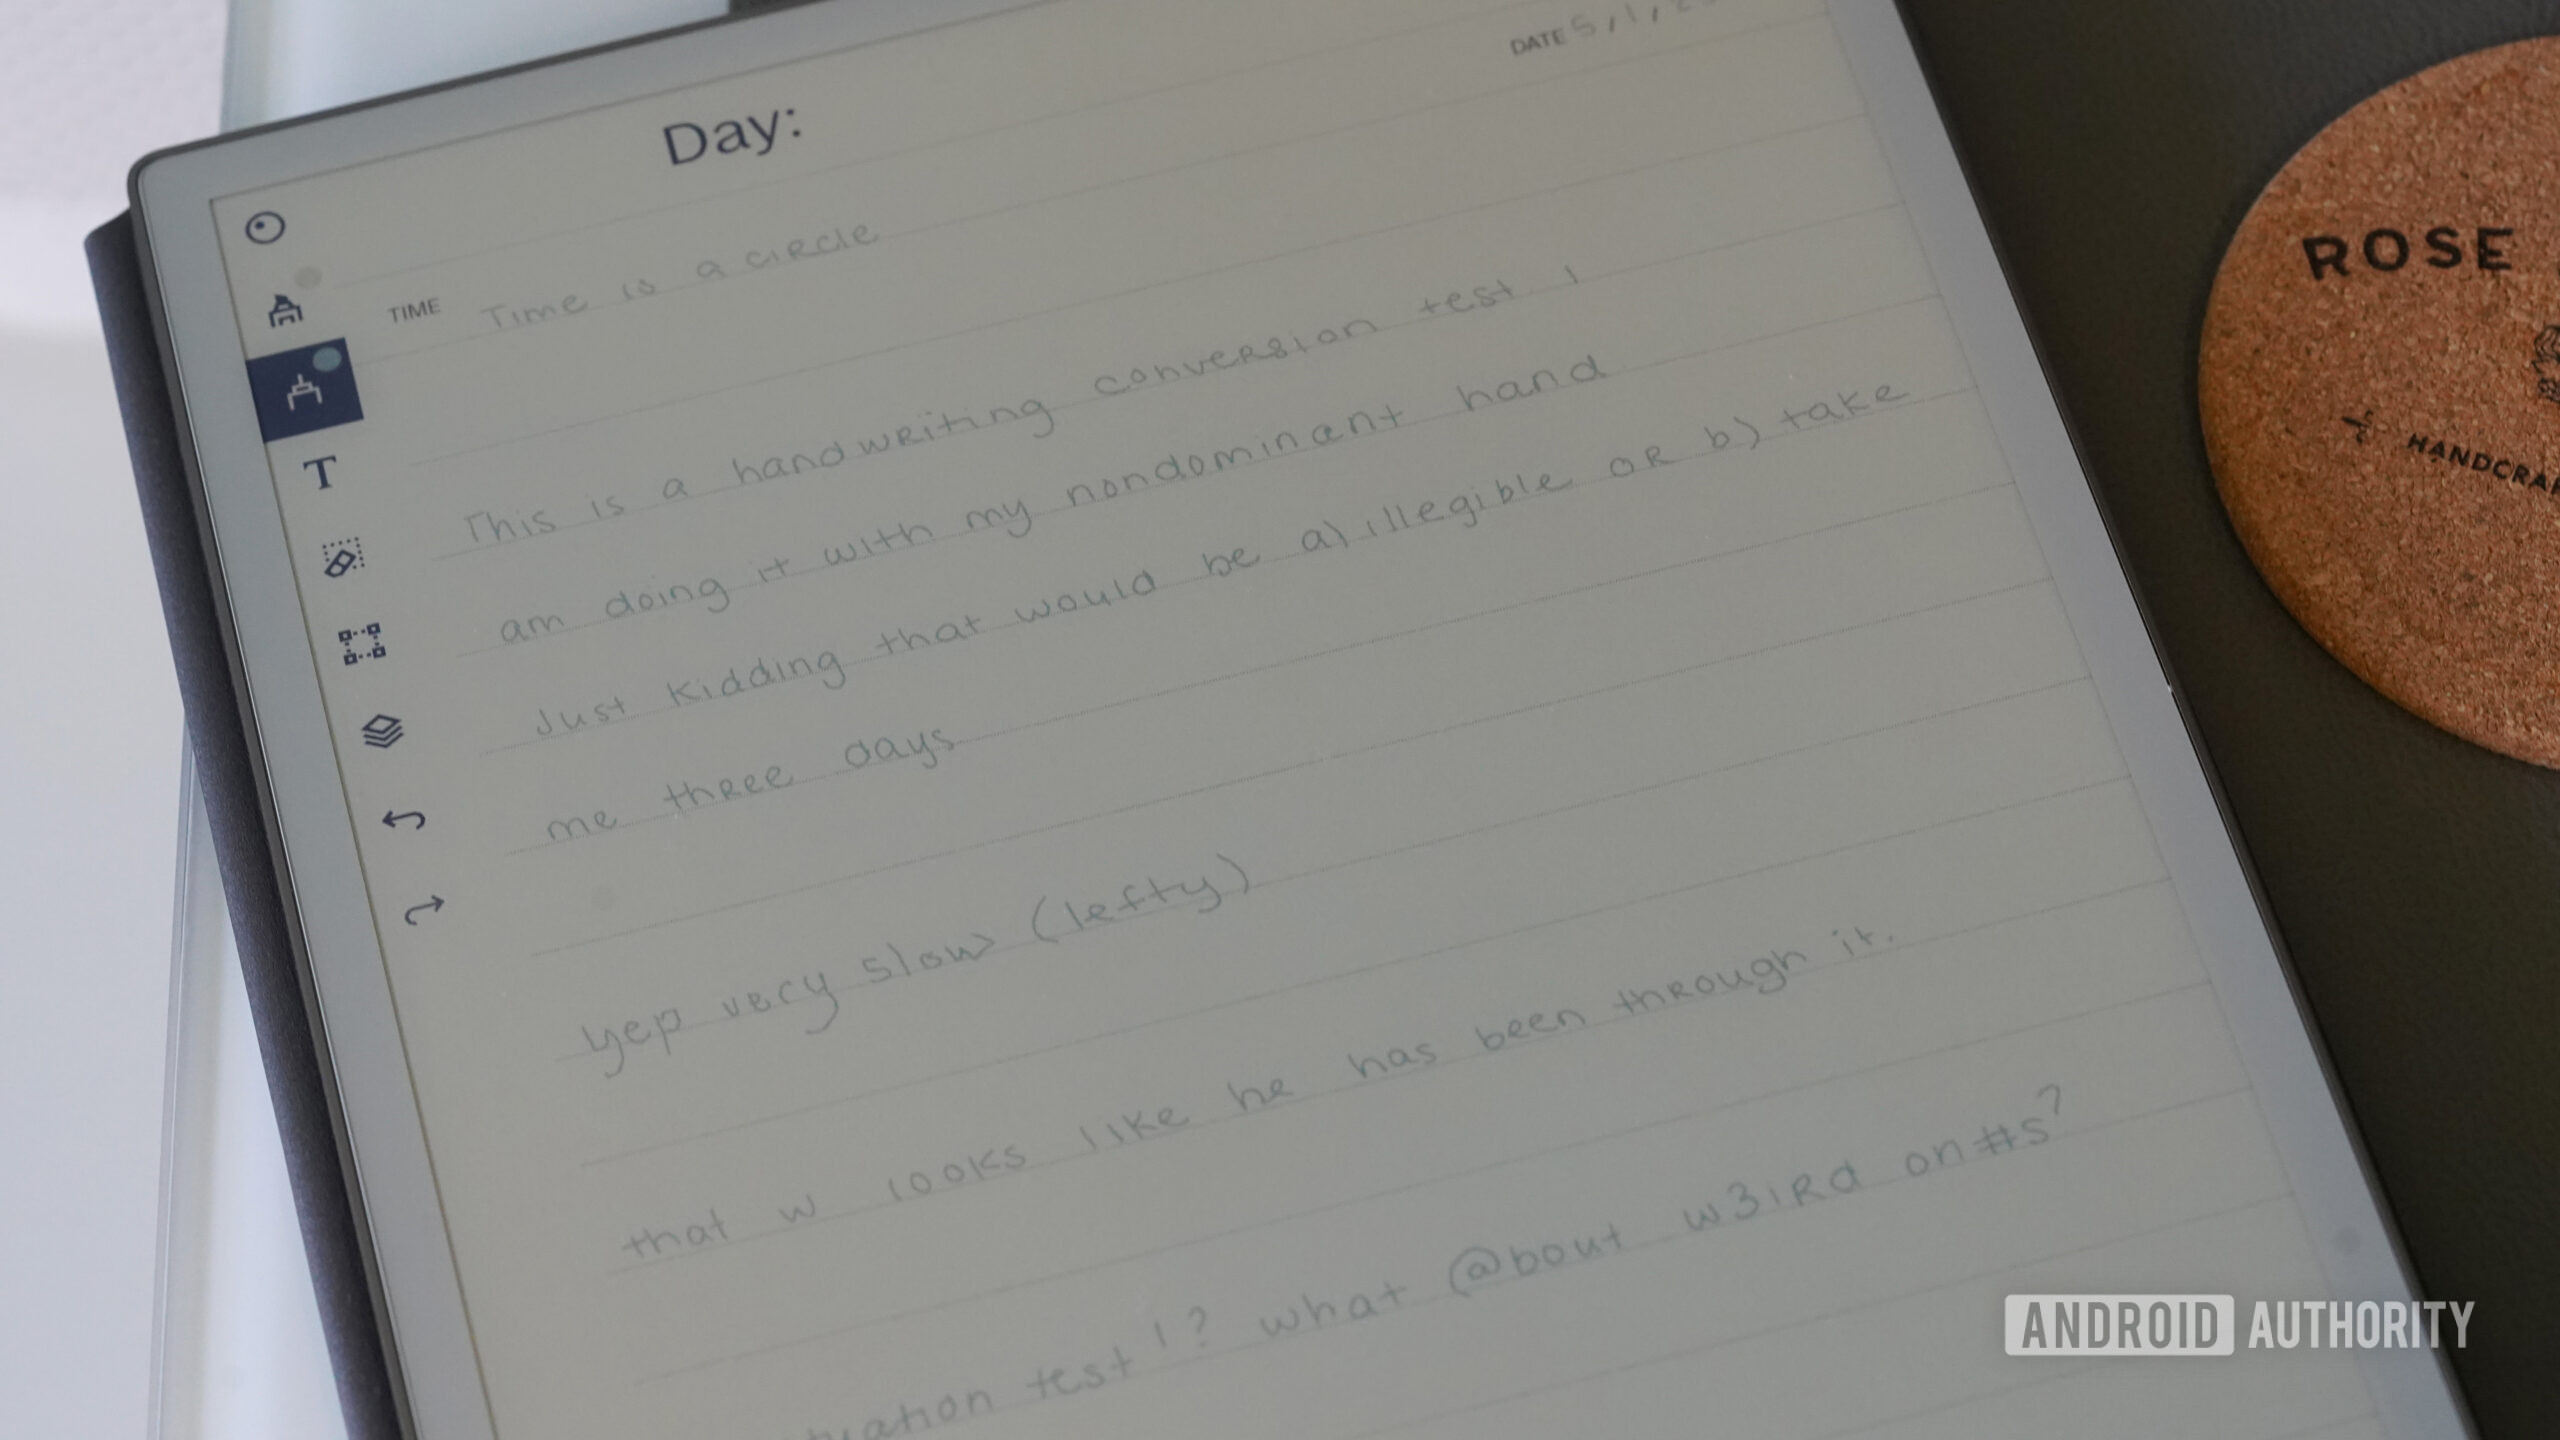 Day:
DATE 5/1/2
TIME Time is a circle
This is a handwriting conversion test I
am doing it with my nondominant hand
Just kidding that would be a) illegible or b) take
me three days
yep very slow (lefty)
that w looks like he has been through it.
test!? what @bout w3ird on#s?
T
ROSE
HANDCRA
ANDROID AUTHORITY